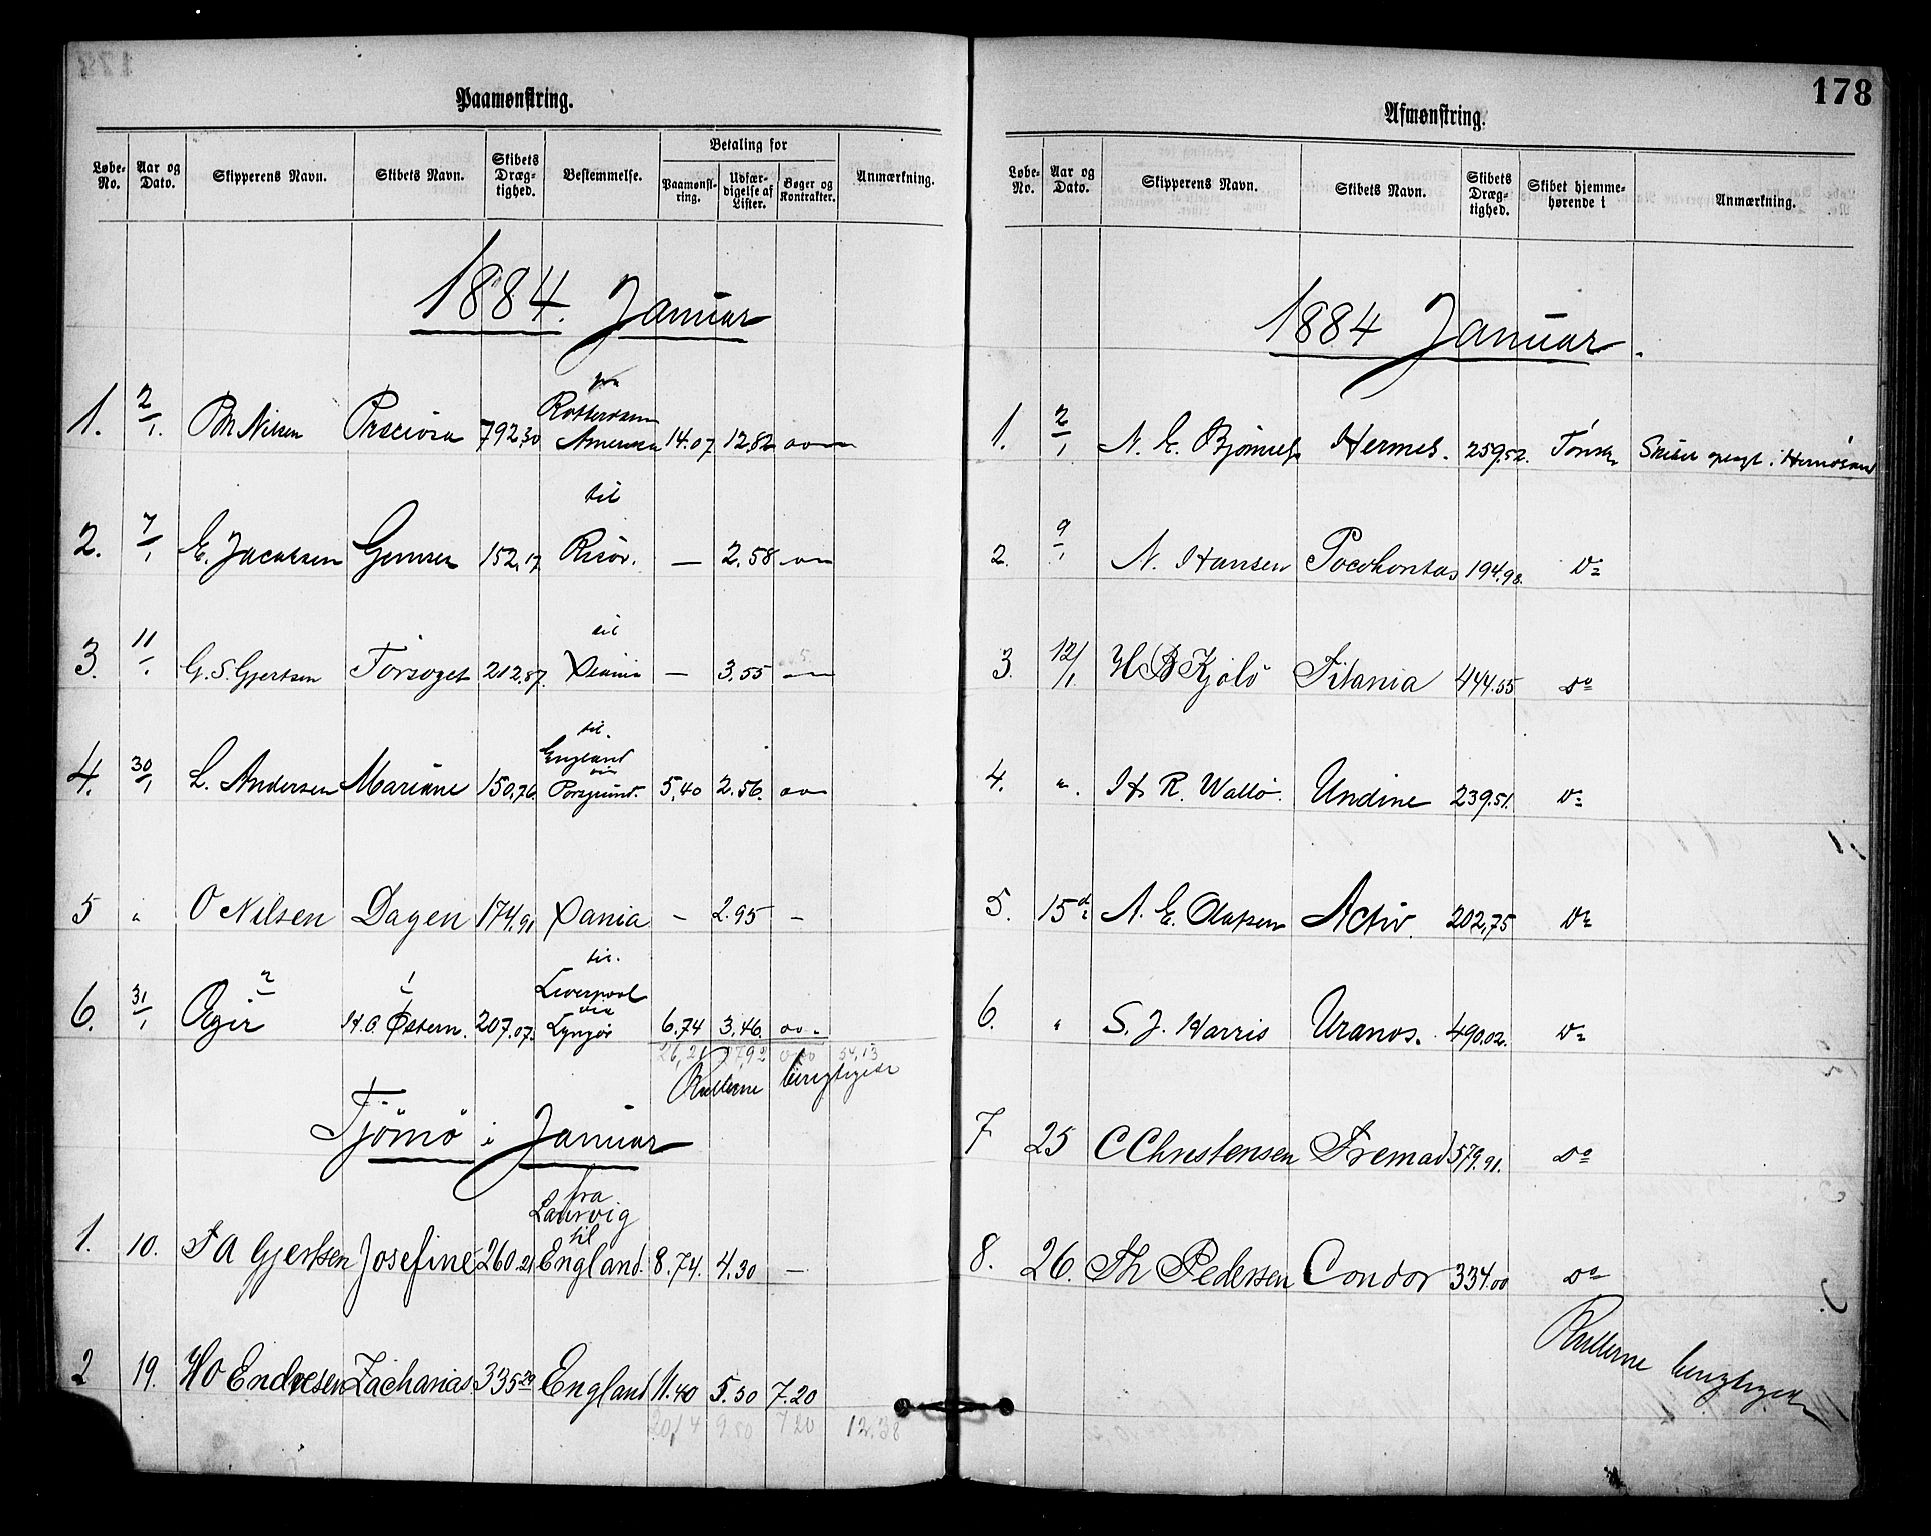 178
Paamønstring.
Løbe-No. Aar og Dato. Skipperens Navn. Skibets Navn. Skibets Dræg-tighed. Bestemmelse. Betaling for Paamønst-ring. Udfær-digelse af Lister. Bøger og Kontrakter. Anmærkning.
1884. Januar
fra
Rotterdam
1. 2/1. Nilsen Preciosa 792,30 Amerika 14.07 12.82
til
2. 7/1 E. Jacobsen Gemsen 152,17 Risör. — 2.58
til
3. 11/1. G. S. Gjertsen Forsøget 212.87. Xiania — 3.55
til
England
via
4. 30/1 L. Andersen Mariane 150,76. Porsgrund. 5,40 2.56.
5 " O Nilsen Dagen 174,91 Xania - 2.95 -
til.
Liverpool
via
6. 31/1 Ægir 2 H. A. Østern. 1 207.07. Lyngör 6.74 3.46
26,21 27,92 54,13
Rullerne berigtigede
Tjömö i Januar
fra
Laurvig
til
1. 10. F A Gjertsen Josefine 260.21 England. 8.74. 4.30 —
2 19. H O Endresen Zacharias 335.29 England 11.40 5.50 7.20
20,14 9.80 7 20 12.38
Afmønstring.
Løbe-No. Aar og Dato. Skipperens Navn. Skibets Navn. Skibets Dræg-tighed. Skibet hjemme-hørende i Anmærkning.
1884 Januar.
1. 2/1 N. E. Hermes. 259.52. Tönsb Skibet oplagt i Hernösand
2. 9/1 N. Hansen Pocohontas 194,98. Do
3. 12/1. H B Kjolö Titania 444.55 Do
4. ". H. R. Wallö. Undine 239.51. Do
5. 15d A. E. Olafsen Activ. 202,75 Do
6. " S. J. Harris Uranos. 490.02. Do
7 25 C Christensen Fremad 579.91. Do
8. 26. Th Pedersen Condor 334.00 Do
Rullerne berigtigede